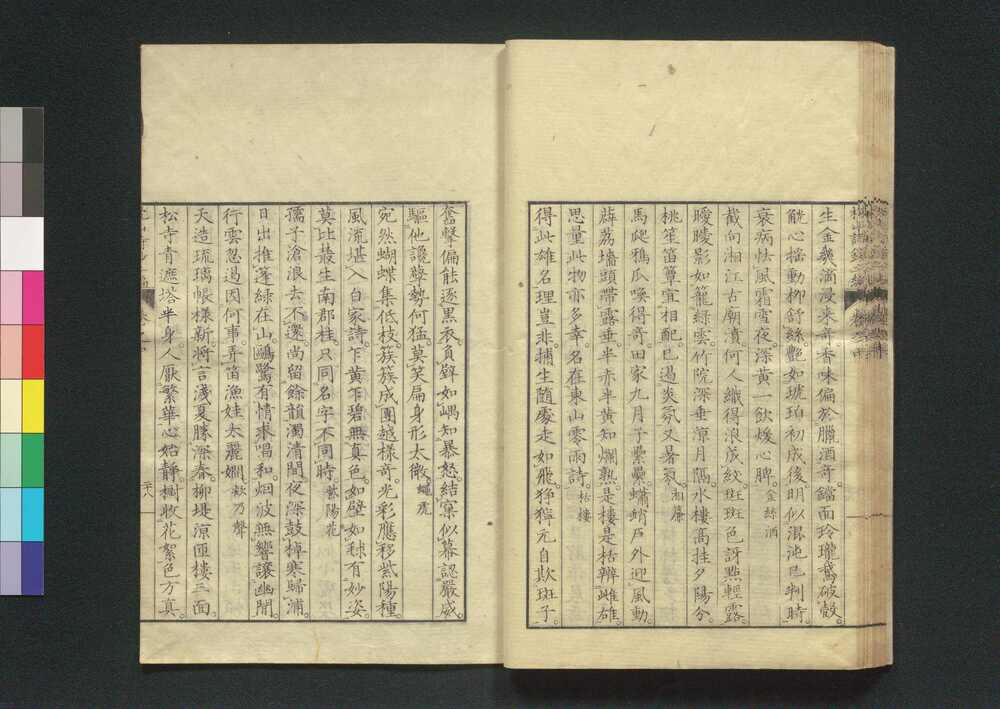 生金爽滴浸来奇香味偏於臘酒奇鐺面玲瓏鵞破殼
觥心揺動柳舒絲艶如琥珀初成後明似混沌已判時
衰病怯風霜雪夜深黄一飲煖心脾金絲酒
截向湘江古廟濆何人織得浪茂紋斑斑色訝㸃輕露
曖曖影如籠緑雲竹院深垂涼月隔水樓髙挂夕陽分
桃笙笛簟宜相配已過炎氛又暑氛湘簾
馬𤓰瓜喚得奇田家九月子纍纍蠨蛸戸外迎風動
薜荔墻頭帶露垂半赤半黄知爛熟是樓是栝辨雌雄
思量此物亦多幸名在東山零雨詩栝樓
得此雄名理豈非捕生随處走如飛狰獰元自欺斑子
奮擊偏能逐黒衣負辥如嵎知暴怒結窠似幕認嚴威
驅他讒孽勢何猛莫笑扁身形太微蠅虎
宛然蝴蝶集低枝簇簇成團越様奇光彩應移紫陽種
風流堪入白家詩乍黄乍碧無真色如璧如毬有妙姿
莫比叢生南郡桂只同名字不同時紫陽花
孺子滄浪去不還尚留餘韻濁清間夜深鼓棹寒歸浦
日出推蓬緑在山鷗鷺有情来唱和烟波無響讓幽閒
行雲忽遏因何事弄笛漁娃太麗嫺欸乃聲
天造琉璃帳様新将言淺夏勝深春柳堤涼匝樓三面
松寺青遮塔半身人厭繁華心始静樹收花絮色方真